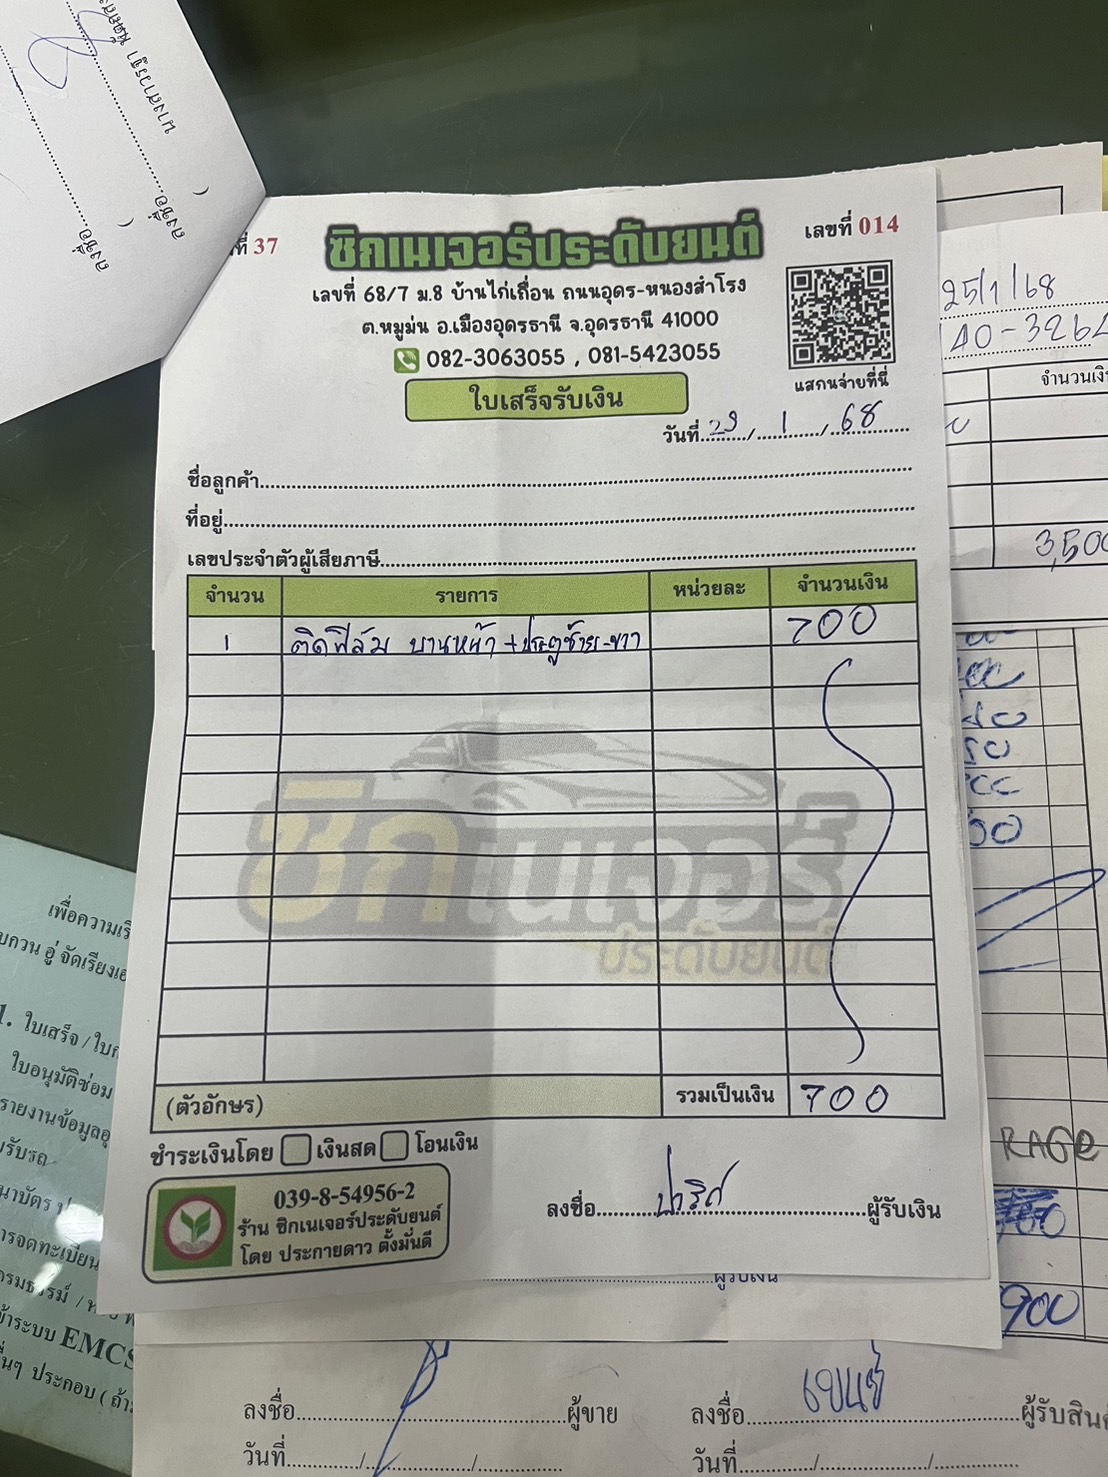 ที่ 37
ซิกเนเจอร์ประดับยนต์
เลขที่ 014
เลขที่ 68/7 ม.8 บ้านไก่เถื่อน ถนนอุดร-หนองสำโรง
ต.หมูม่น อ.เมืองอุดรธานี จ.อุดรธานี 41000
082-3063055 , 081-5423055
แสกนจ่ายที่นี่
ใบเสร็จรับเงิน
วันที่ 29 / 1 / 68
ชื่อลูกค้า
ที่อยู่
เลขประจำตัวผู้เสียภาษี
จำนวน รายการ หน่วยละ จำนวนเงิน
1 ติดฟิล์ม บานหน้า + ประตูซ้าย-ขวา 700
ซิกเนเจอร์
ประดับยนต์
(ตัวอักษร) รวมเป็นเงิน 700
ชำระเงินโดย เงินสด โอนเงิน
039-8-54956-2
ร้าน ซิกเนเจอร์ประดับยนต์
โดย ประกายดาว ตั้งมั่นดี
ลงชื่อ ผู้รับเงิน
25/1/68
จำนวนเงิน
3,500
RAGE
900
ผู้รับเงิน
ลงชื่อ ผู้ขาย
ลงชื่อ ผู้รับสิน
วันที่ / /
วันที่ / /
ลงชื่อ
ลงชื่อ
เพื่อความเรี
บกวน อู่ จัดเรียงเอ
1. ใบเสร็จ /
ใบอนุมัติซ่อม
รายงานข้อมูลอุ
รับรถ
การจดทะเบียน
เข้าระบบ EMCS
อื่นๆ ประกอบ ( ถ้า